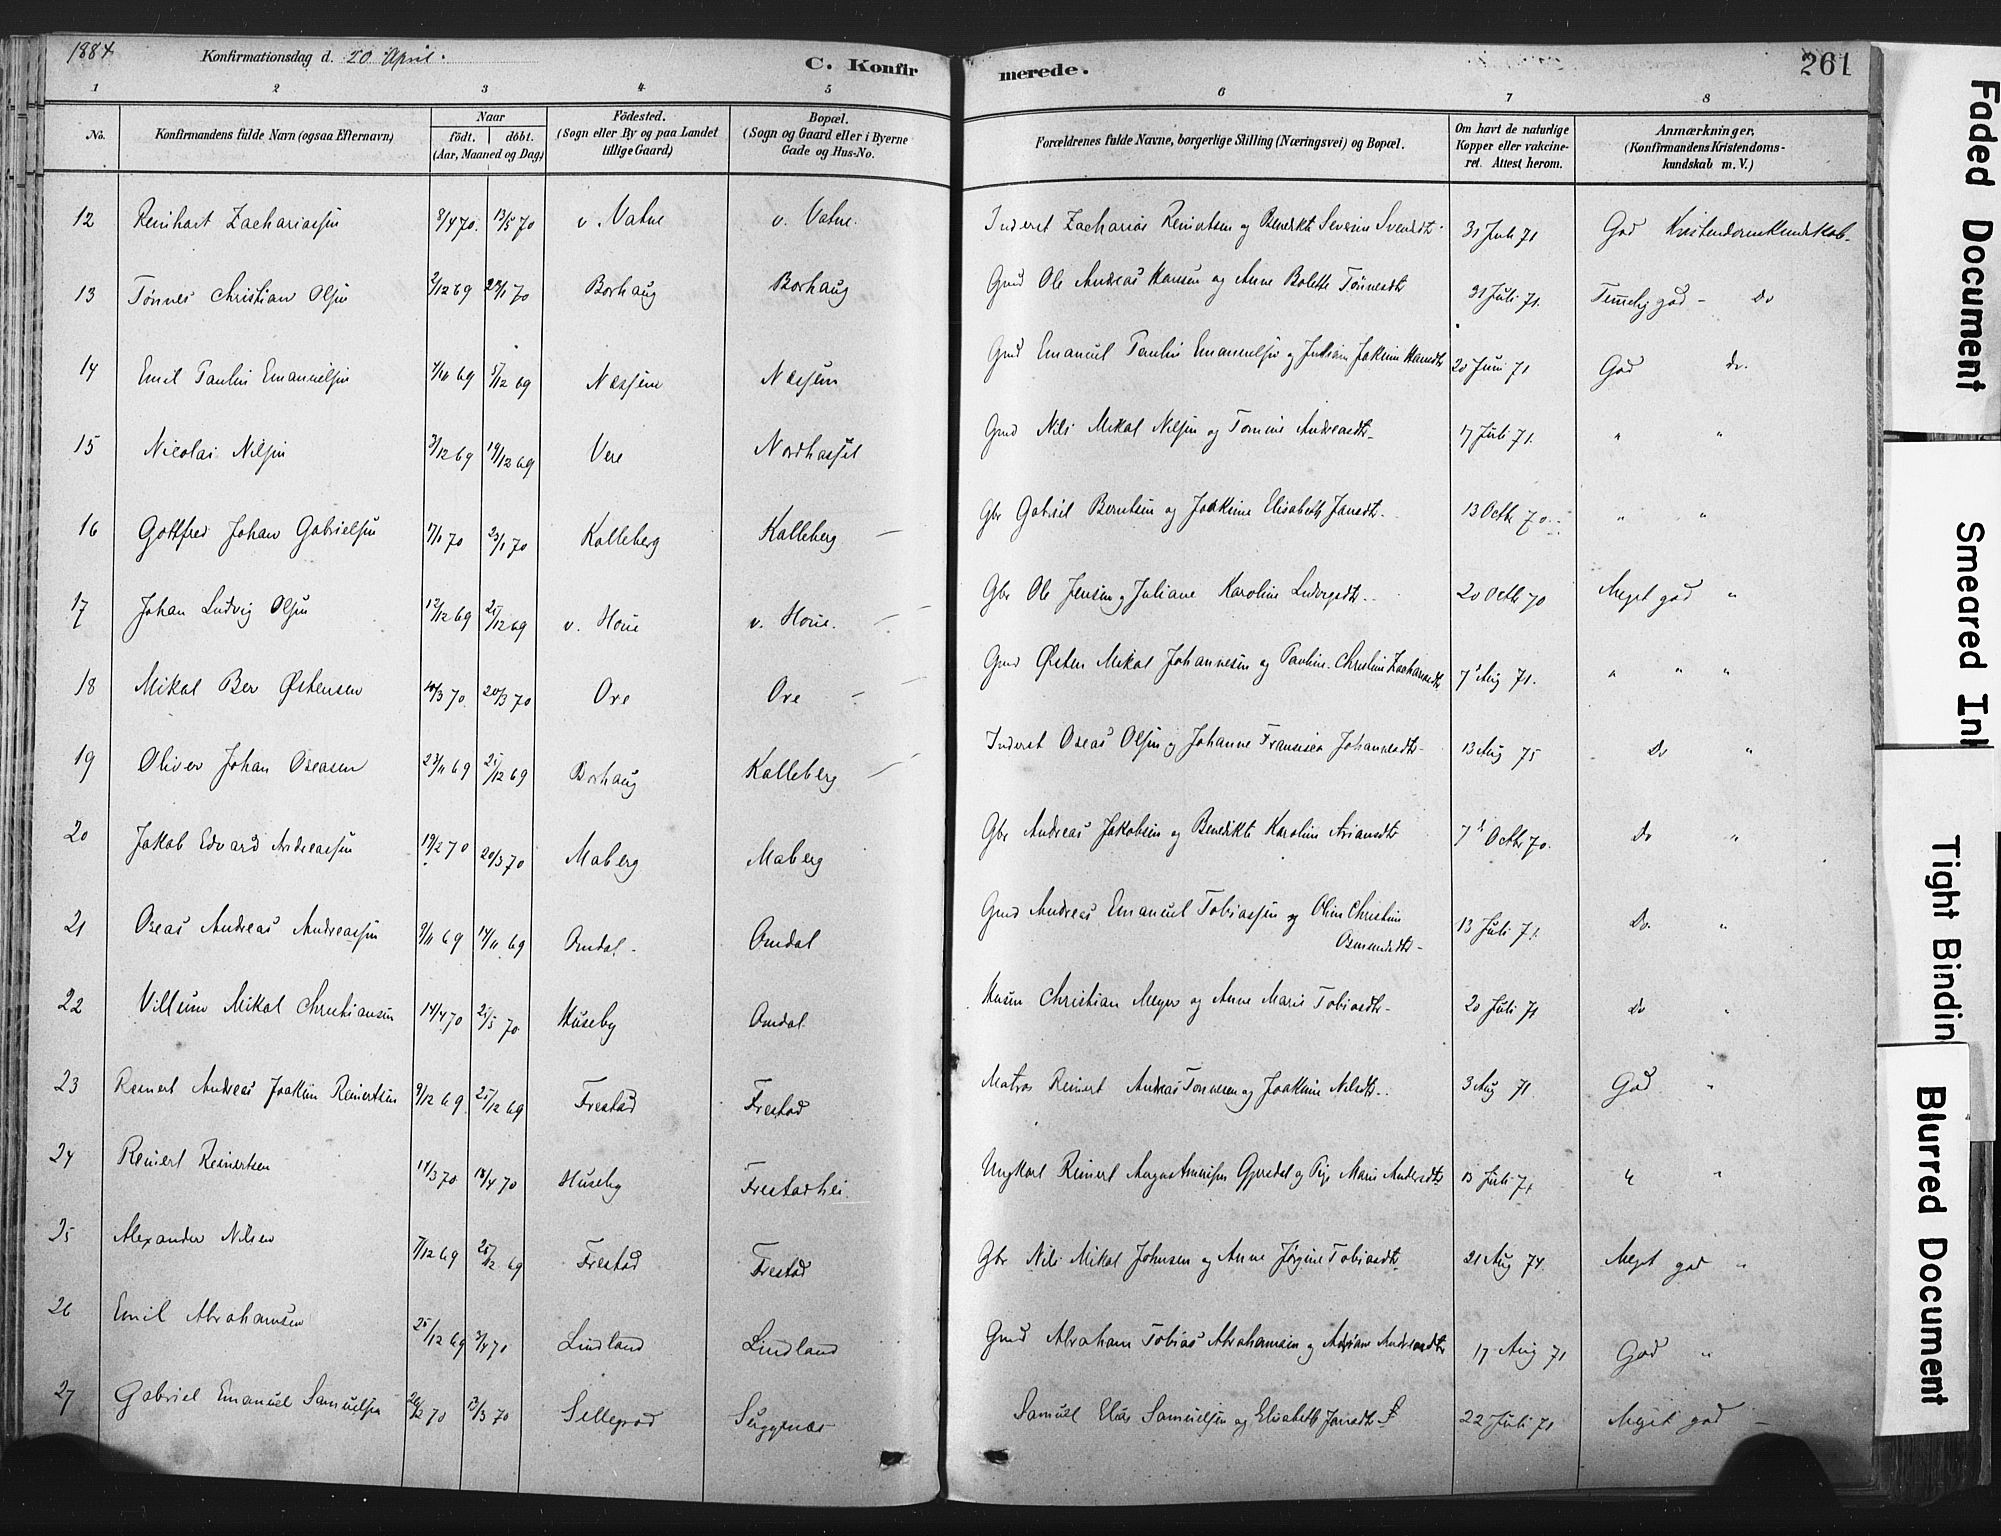 1884 Konfirmationsdag d. 20 April. C. Konfirmerede. 261
1 2 3 4 5 6 7 8
No. Konfirmandens fulde Navn (ogsaa Efternavn) Naar født. døbt. (Aar, Maaned og Dag) Fødested. (Sogn eller By og paa Landet tillige Gaard) Bopæl. (Sogn og Gaard eller i Byerne Gade og Hus-No. Forældrenes fulde Navne, borgerlige Stilling (Næringsvei) og Bopæl. Om havt de naturlige Kopper eller vakcineret. Attest herom. Anmærkninger, (Konfirmandens Kristendomskundskab m. V.)
12 Reinhart Zachariassen 8/4 70. 13/5 70 v. Vatne v. Vatne. Inderst Zacharias Reinertsen og Benedikte Severine Svendsdtr 31 Juli 71 God Kristendomskundskab.
13 Tønnes Christian Olsen 2/12 69 23/1 70 Borhaug Borhaug Gmd Ole Andreas Hansen og Anne Bolette Tønnesdtr 31 Juli 71. Temelig god - Do
14 Emil Paulin Emanuelsen 7/10 69 5/12 69 Næssem Næssem Gmd Emanuel Paulin Emanuelsen og Juliane Jokime Hansdtr 20 Juni 71 God Do.
15 Nicolai Nilsen 3/12 69 19/12 69 Vere Nordhassel Gmd Nils Mikal Nilsen og Tomine Andreasdtr 17 Juli 71. " "
16 Gottfred Johan Gabrielsen 17/1 70 23/1 70 Kalleberg Kalleberg Gbr Gabriel Berntsen og Joakime Elisabeth Jansdtr. 13 Octb 70. " "
17 Johan Ludvig Olsen 12/12 69 25/12 69 v. Hove v. Hove. Gbr Ole Jensen og Juliane Karoline Ludvigsdtr. 20 Octb 70 Meget god "
18 Mikal Ber Østensen 10/3 70. 20/3 70 Ore Ore Gmd Østen Mikal Johannesen og Pauline Christine Zachariasdtr 7' Aug 71. " " "
19 Oliver Johan Oseasen 23/11 69 25/12 69 Borhaug Kalleberg Inderst Oseas Olsen og Johanne Francisca Johannesdtr 13 Aug 75 Do "
20 Jakob Edvard Andreassen 19/2 70 20/3 70 Maberg Maberg Gbr Andreas Jakobsen og Benedikte Karoline Ariansdtr 7' Octb 70. Do "
21 Oseas Andreas Andreassen 9/11 69 14/11 69 Omdal Omdal Gmd Andreas Emanuel Tobiassen og Oline Christine Osmundsdtr 13 Juli 71. Do. "
22 Villum Mikal Christiansen 14/4 70 25/5 70 Huseby Omdal Husm Christian Meyer og Anne Marie Tobiasdtr 20 Juli 71 Do "
23 Reinert Andreas Joakim Reinertsen 9/12 69. 25/12 69 Frestad Frestad Matros Reinert Andreas Tønnesen og Joakime Nilsdtr. 3 Aug 71. God "
24 Reinert Reinertsen 14/3 70 18/4 70 Huseby Frestadhei Ungkarl Reinert Gjersdal og Pige Marie Andersdtr 13 Juli 71 " "
25 Alexander Nilsen 7/12 69 25/12 69 Frestad Frestad Gbr Nils Mikal Johnsen og Anne Jørgine Tobiasdtr 21 Aug 74. Meget god "
26 Emil Abrahamsen 25/12 69 3/4 71 Lindland Lindland Gmd Abraham Tobias Abrahamsen og Andreasdtr 17 Aug 71 God "
27 Gabriel Emanuel Samuelsen 26/2 70 13/3 70 Samuel Elias Samuelsen og Elisabeth Jansdtr 22 Juli 71 Meget god -
Faded Document
Smeared Ink
Tight Bindin
Blurred Document